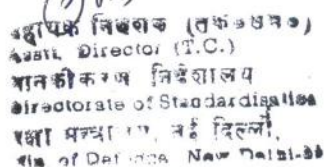 सहायक निदेशक (तक॰ सम॰)
Asstt. Director (T.C.)
मानकीकरण निदेशालय
Directorate of Standardisation
रक्षा मन्त्रालय, नई दिल्ली,
Min. of Defence, New Delhi-